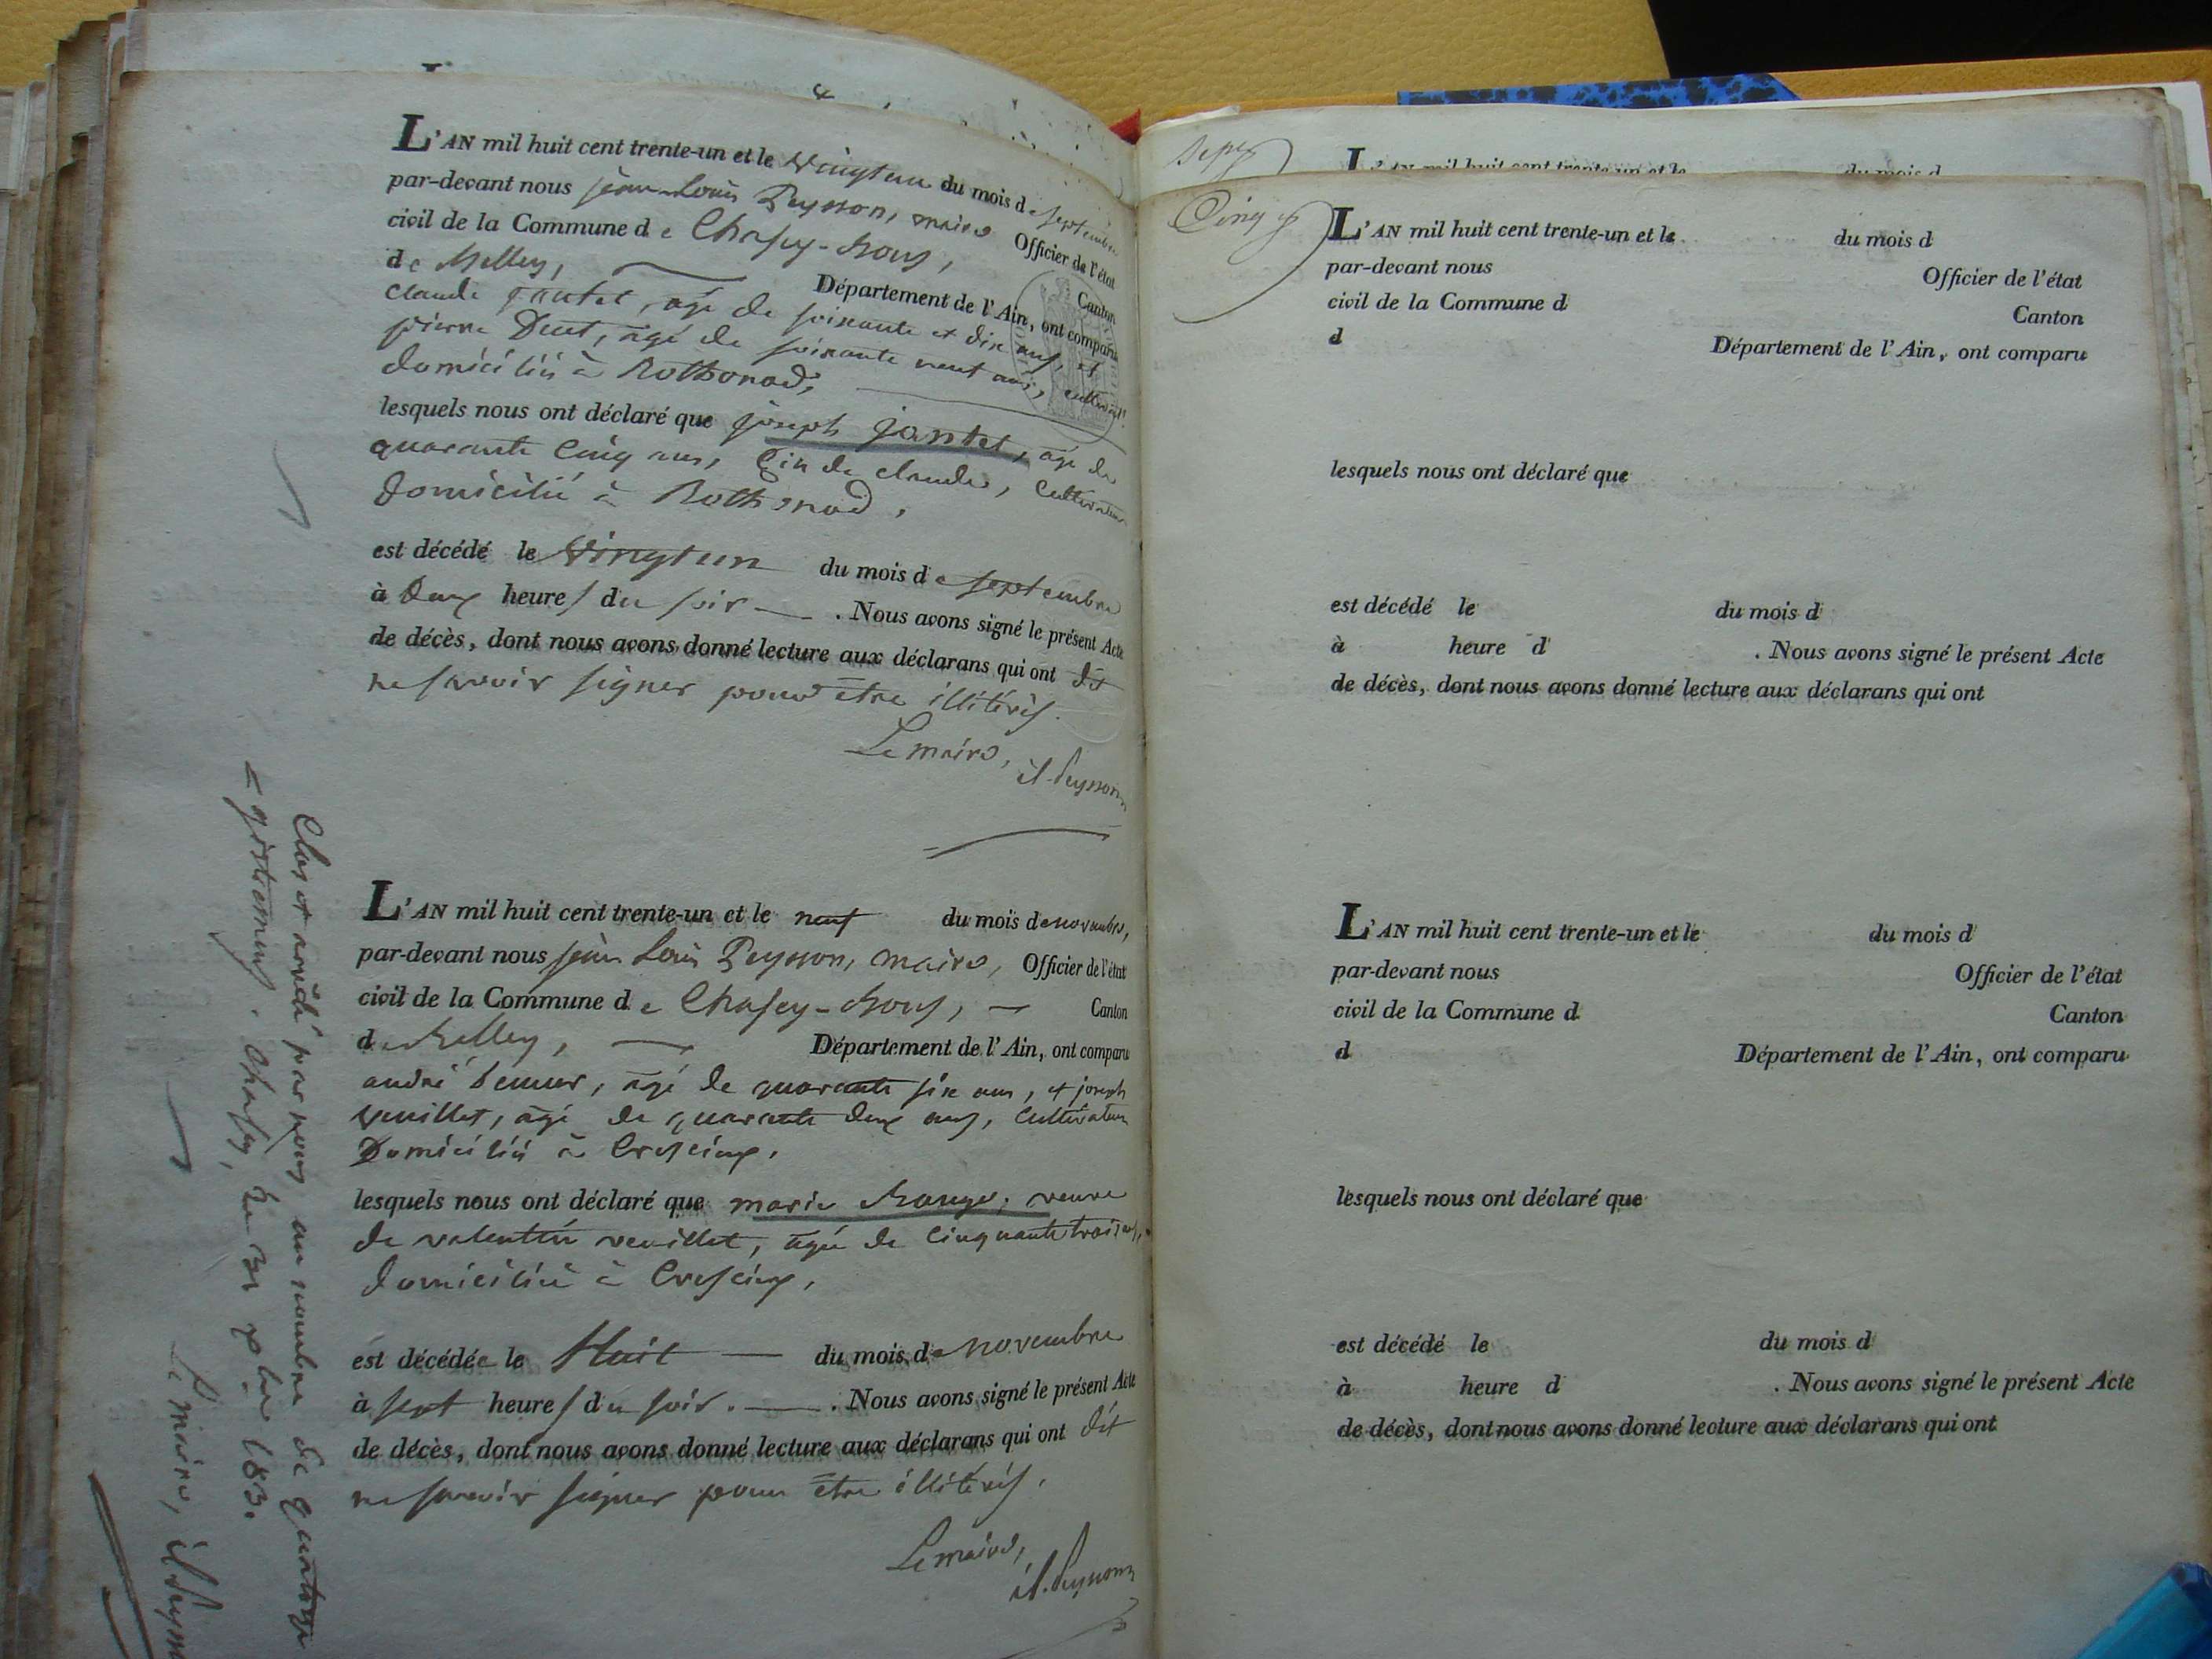 L'AN mil huit cent trente-un et le vingtun du mois de septembre
par-devant nous jean Louis Peysson, maire Officier de l'état
civil de la Commune de Chasey-Bons, Canton
de Belley, Département de l'Ain, ont comparu
claude jantet, agé de soixante et dix ans, et
pierre agé de soixante neuf ans, cultivat.
domiciliés à Rothonod,
lesquels nous ont déclaré que joseph jantet, agé de
quarante cinq ans, fils de claude, cultivateur
domicilié à Rothonod,
est décédé le vingtun du mois de septembre
à deux heures du soir . Nous avons signé le présent Acte
de décès, dont nous avons donné lecture aux déclarans qui ont dit
ne savoir signer pour être illitérés.
Le maire,
jl. Peysson
L'AN mil huit cent trente-un et le neuf du mois de novembre,
par-devant nous jean Louis Peysson, maire, Officier de l'état
civil de la Commune de Chasey-Bons, Canton
de Belley, Département de l'Ain, ont comparu
andré agé de quarante six ans, et joseph
veuillet, agé de quarante deux ans, cultivateurs
Domiciliés à Cressieux,
lesquels nous ont déclaré que marie veuve
de valentin veuillet, agée de cinquante trois ans,
domiciliée à Cressieux,
est décédée le Huit du mois de novembre
à sept heures du soir. . Nous avons signé le présent Acte
de décès, dont nous avons donné lecture aux déclarans qui ont dit
ne savoir signer pour être illitérés.
Le maire,
jl. Peysson
Clos et arrêté par nous au nombre de quatorze
Chasey, Le 31 xbre 1831
Le maire, jl Peysson
Sept
L'AN mil huit cent trente-un et le du mois d
Cinq
L'AN mil huit cent trente-un et le du mois d
par-devant nous Officier de l'état
civil de la Commune d Canton
d Département de l'Ain, ont comparu
lesquels nous ont déclaré que
est décédé le du mois d
à heure d . Nous avons signé le présent Acte
de décès, dont nous avons donné lecture aux déclarans qui ont
L'AN mil huit cent trente-un et le du mois d
par-devant nous Officier de l'état
civil de la Commune d Canton
d Département de l'Ain, ont comparu
lesquels nous ont déclaré que
est décédé le du mois d
à heure d . Nous avons signé le présent Acte
de décès, dont nous avons donné lecture aux déclarans qui ont